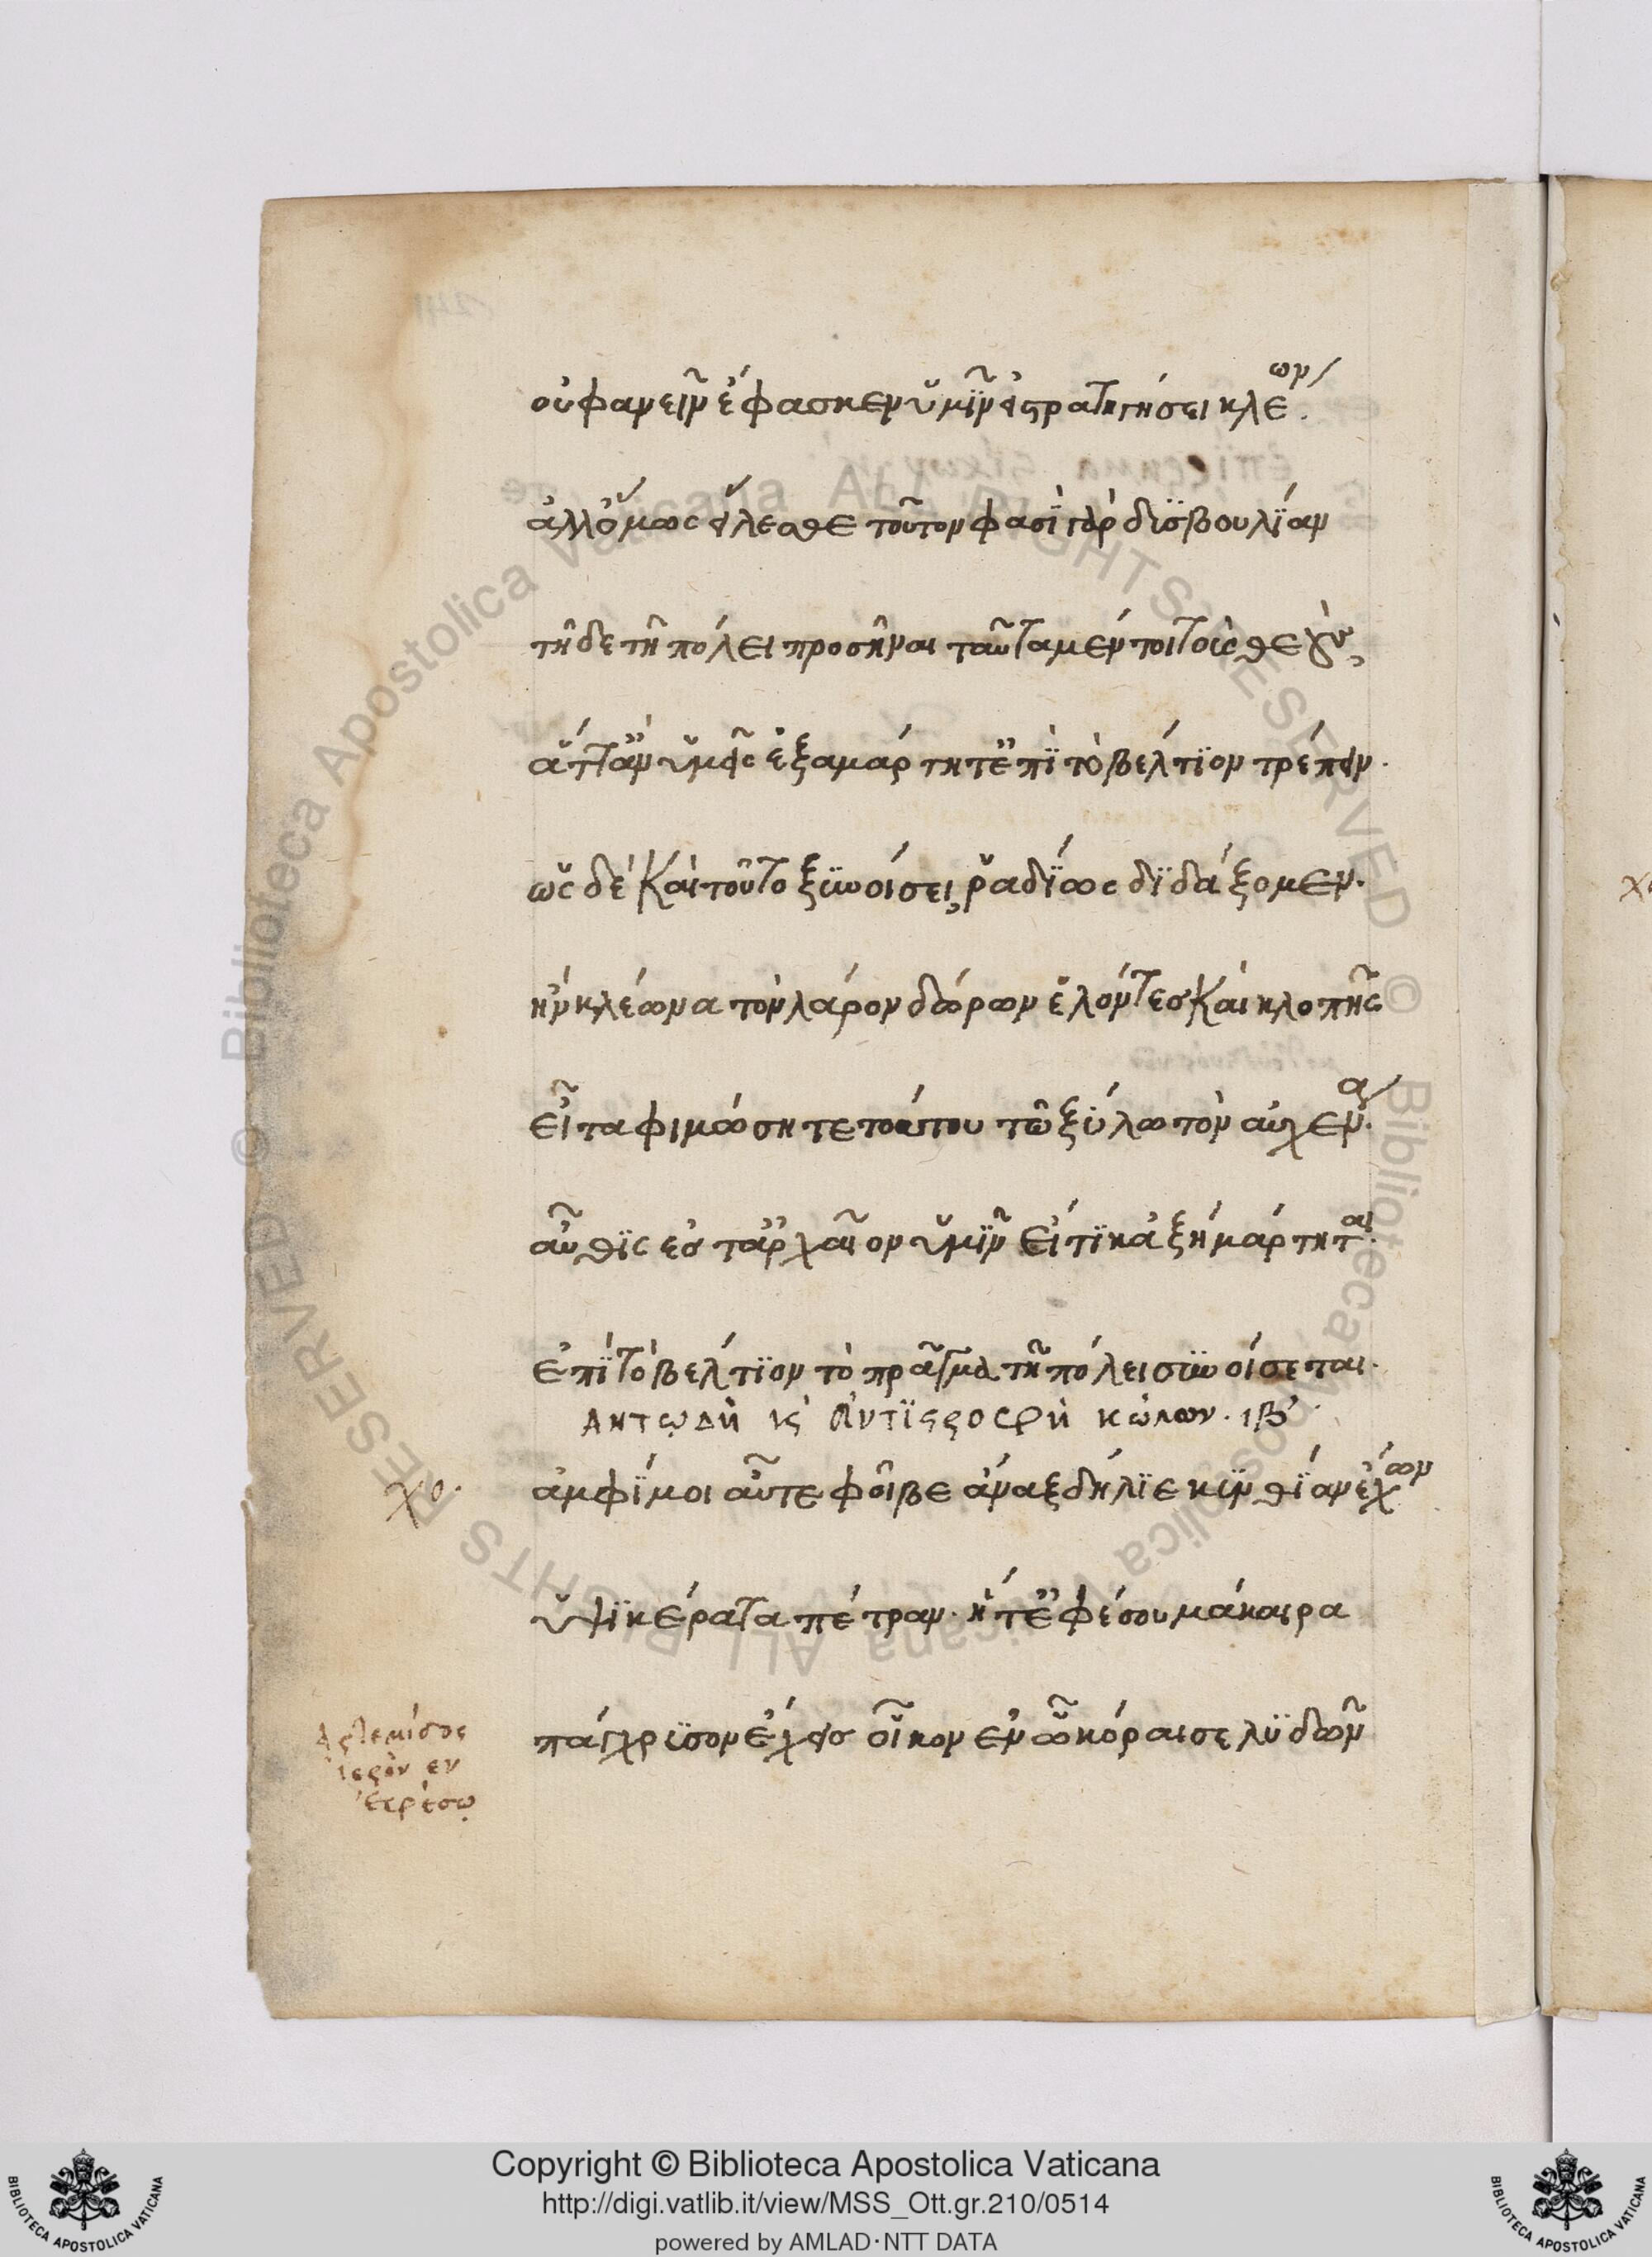 οὐ φανεῖν ἔφασκεν ὑμῖν εἰ στρατηγήσει κλέων
ἀλλ' ὅμως εἵλεσθε τοῦτον φασὶ γὰρ δϊσβουλίαν
τῆδε τῆ πόλει προσῆναι ταῦτα μέν τοι τοὺς θεοὺς,
ἅττ' ἂν ὑμεῖς ἐξαμάρτητ' ἐπὶ τὸ βέλτιον τρέπειν.
ὡς δὲ καὶ τοῦτο ξυνοίσει, ῥαδίως διδάξομεν.
ἢν κλέωνα τὸν λάρον δώρων ἑλόντες καὶ κλοπῆς
εἶτα φιμώσητε τούτου τῶ ξύλω τὸν αὐχένα.
αὖθις ἐς τἀρχαῖον ὑμῖν εἴ τι κἀξημάρτηται.
ἐπὶ τὸ βέλτιον τὸ πρᾶγμα τῆ πόλει συνοίσεται.
ἀντῳδὴ κ̀ ἀντίστροφὴ κώλων. ιβ'.
χο. ἀμφί μοι αὖτε φοῖβε ἄναξ δήλιε κυνθίαν ἔχων
ὑψικέρατα πέτραν. ἥ τ' ἐφέσου μάκαιρα
πάγχρυσον ἔχεις οἶκον ἐν ὧ κόραι σε λυδῶν
Ἀρτεμίδος
ἱερὸν ἐν
Ἐφέσῳ
Copyright © Biblioteca Apostolica Vaticana
http://digi.vatlib.it/view/MSS_Ott.gr.210/0514
powered by AMLAD·NTT DATA
BIBLIOTECA APOSTOLICA VATICANA
BIBLIOTECA APOSTOLICA VATICANA
© Biblioteca Apostolica Vaticana ALL RIGHTS RESERVED
© Biblioteca Apostolica Vaticana ALL RIGHTS RESERVED